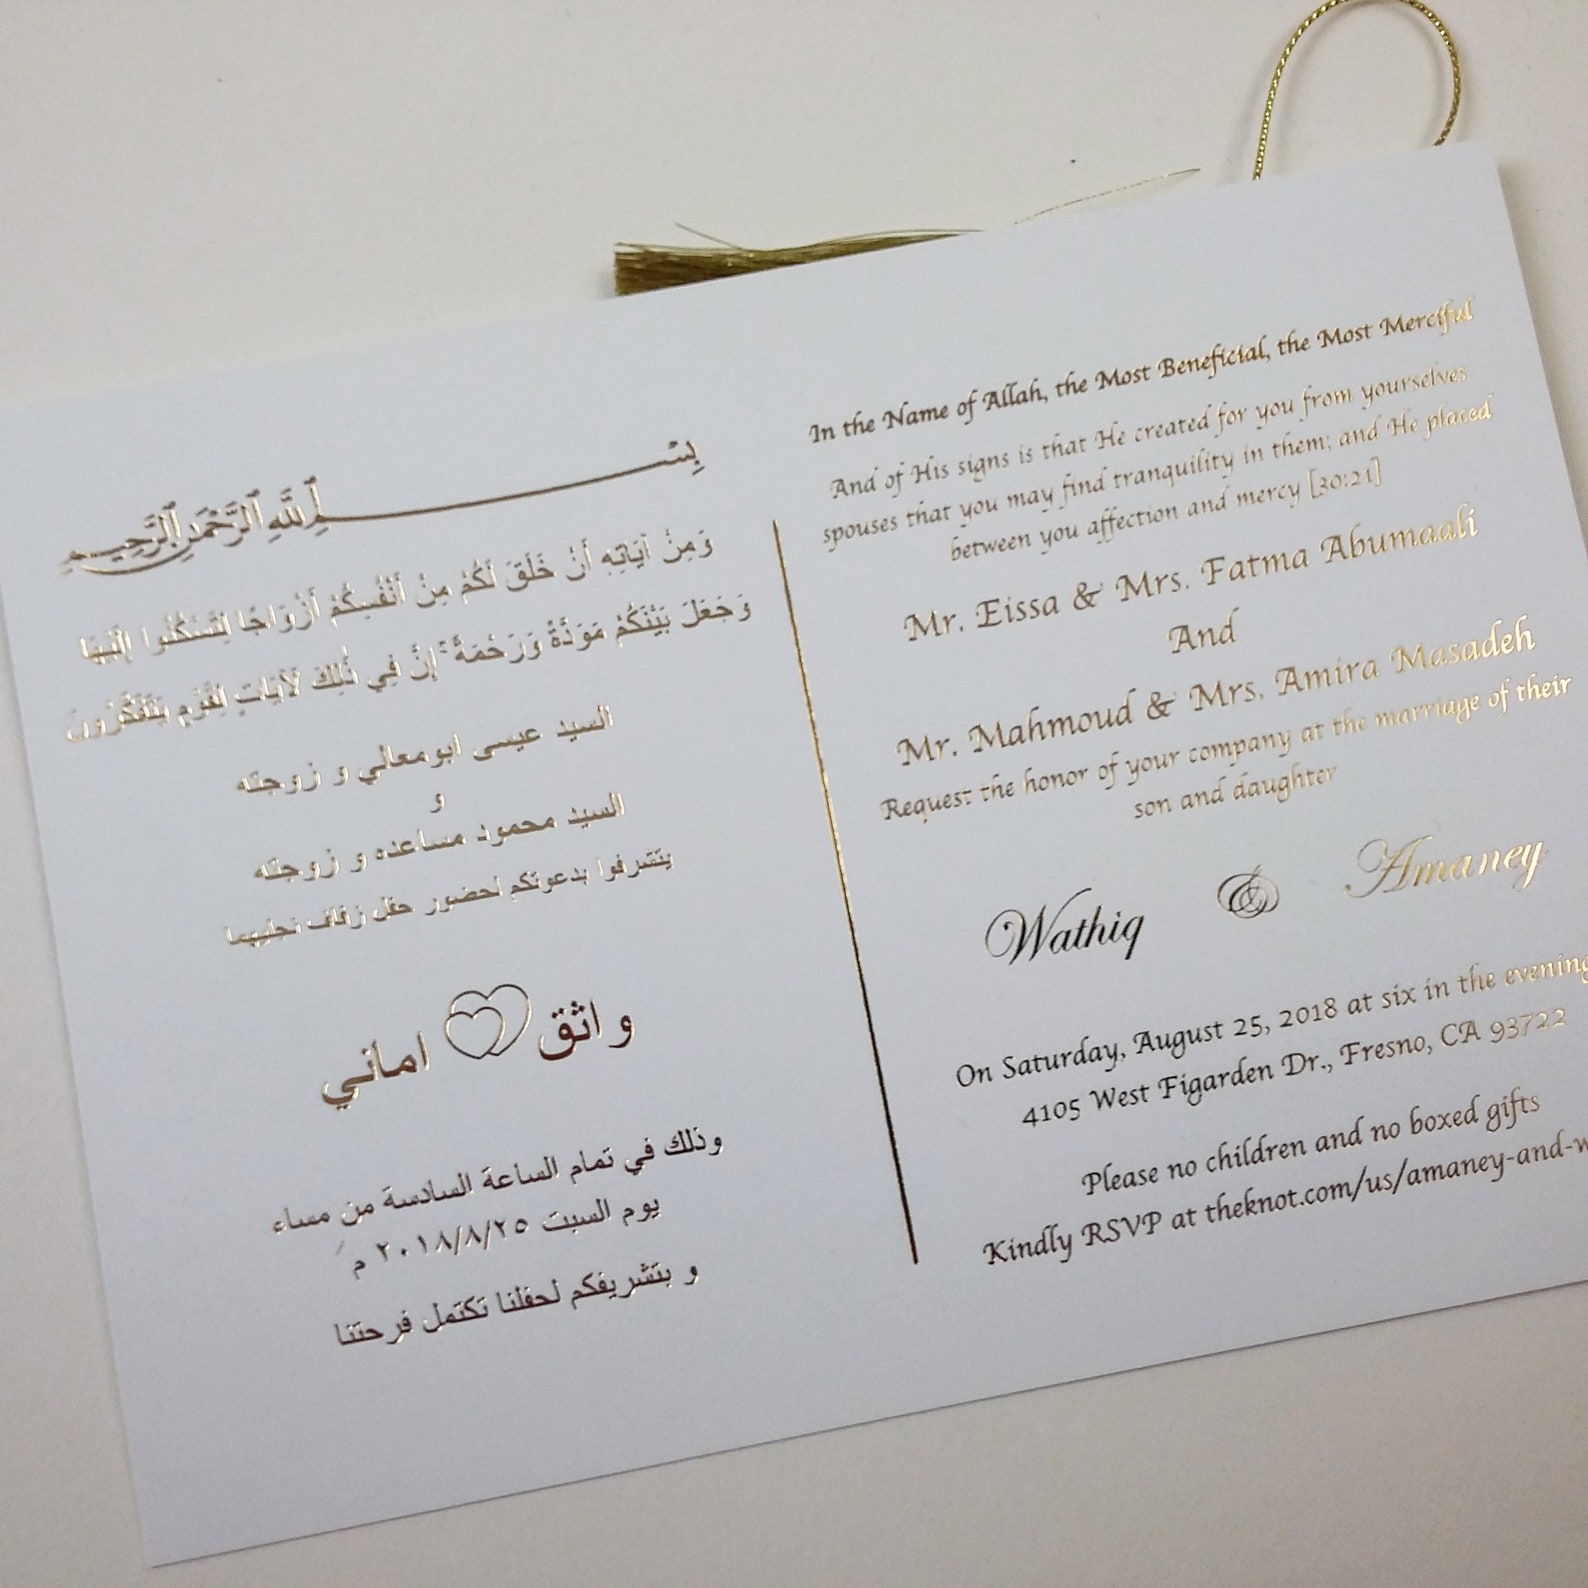 بِسْمِ ٱللَّهِ ٱلرَّحْمَٰنِ ٱلرَّحِيمِ
وَمِنْ آيَاتِهِ أَنْ خَلَقَ لَكُمْ مِنْ أَنْفُسِكُمْ أَزْوَاجًا لِتَسْكُنُوا إِلَيْهَا
وَجَعَلَ بَيْنَكُمْ مَوَدَّةً وَرَحْمَةً ۚ إِنَّ فِي ذَٰلِكَ لَآيَاتٍ لِقَوْمٍ يَتَفَكَّرُونَ
السيد عيسى ابومعالي و زوجته
و
السيد محمود مساعده و زوجته
يتشرفوا بدعوتكم لحضور حفل زفاف نجليهما
واثق اماني
وذلك في تمام الساعة السادسة من مساء
يوم السبت ٢٠١٨/٨/٢٥ م
و بتشريفكم لحفلنا تكتمل فرحتنا
In the Name of Allah, the Most Beneficial, the Most Merciful
And of His signs is that He created for you from yourselves
spouses that you may find tranquility in them; and He placed
between you affection and mercy [30:21]
Mr. Eissa & Mrs. Fatma Abumaali
And
Mr. Mahmoud & Mrs. Amira Masadeh
Request the honor of your company at the marriage of their
son and daughter
Wathiq & Amaney
On Saturday, August 25, 2018 at six in the evening
4105 West Figarden Dr., Fresno, CA 93722
Please no children and no boxed gifts
Kindly RSVP at theknot.com/us/amaney-and-w